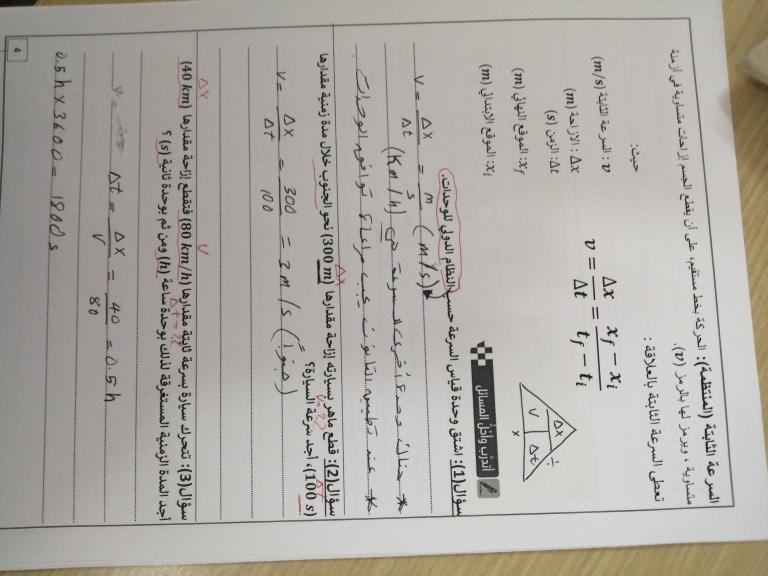 السرعة الثابتة (المنتظمة): الحركة بخط مستقيم، على أن يقطع الجسم إزاحات متساوية في أزمنة
متساوية، ويرمز لها بالرمز (v).
تعطى السرعة الثابتة بالعلاقة :
v = Δx / Δt = (xf − xi) / (tf − ti)
Δx
÷
v Δt
x
حيث:
v : السرعة الثابتة (m/s)
Δx : الازاحة (m)
Δt: الزمن (s)
xf: الموقع النهائي (m)
xi: الموقع الابتدائي (m)
أتدرب وأحل المسائل
سؤال(1): اشتق وحدة قياس السرعة حسب النظام الدولي للوحدات.
v = Δx / Δt = m / s (m/s)
* هناك وحدة أخرى للسرعة هي (Km/h)
* عند تطبيق القانون يجب مراعاة توافق الوحدات
Δx
سؤال(2): قطع ماهر بسيارته إزاحة مقدارها (300 m) نحو الجنوب خلال مدة زمنية مقدارها
Δt v=??
(100 s)، أجد سرعة السيارة؟
v = Δx / Δt = 300 / 100 = 3 m/s (جنوباً)
Δx v
سؤال(3): تتحرك سيارة بسرعة ثابتة مقدارها (80 km/h) فتقطع إزاحة مقدارها (40 km)
Δt = ??
أجد المدة الزمنية المستغرقة لذلك بوحدة ساعة (h) ومن ثم بوحدة ثانية (s) ؟
Δt = Δx / v = 40 / 80 = 0.5 h
0.5 h x 3600 = 1800 s
4